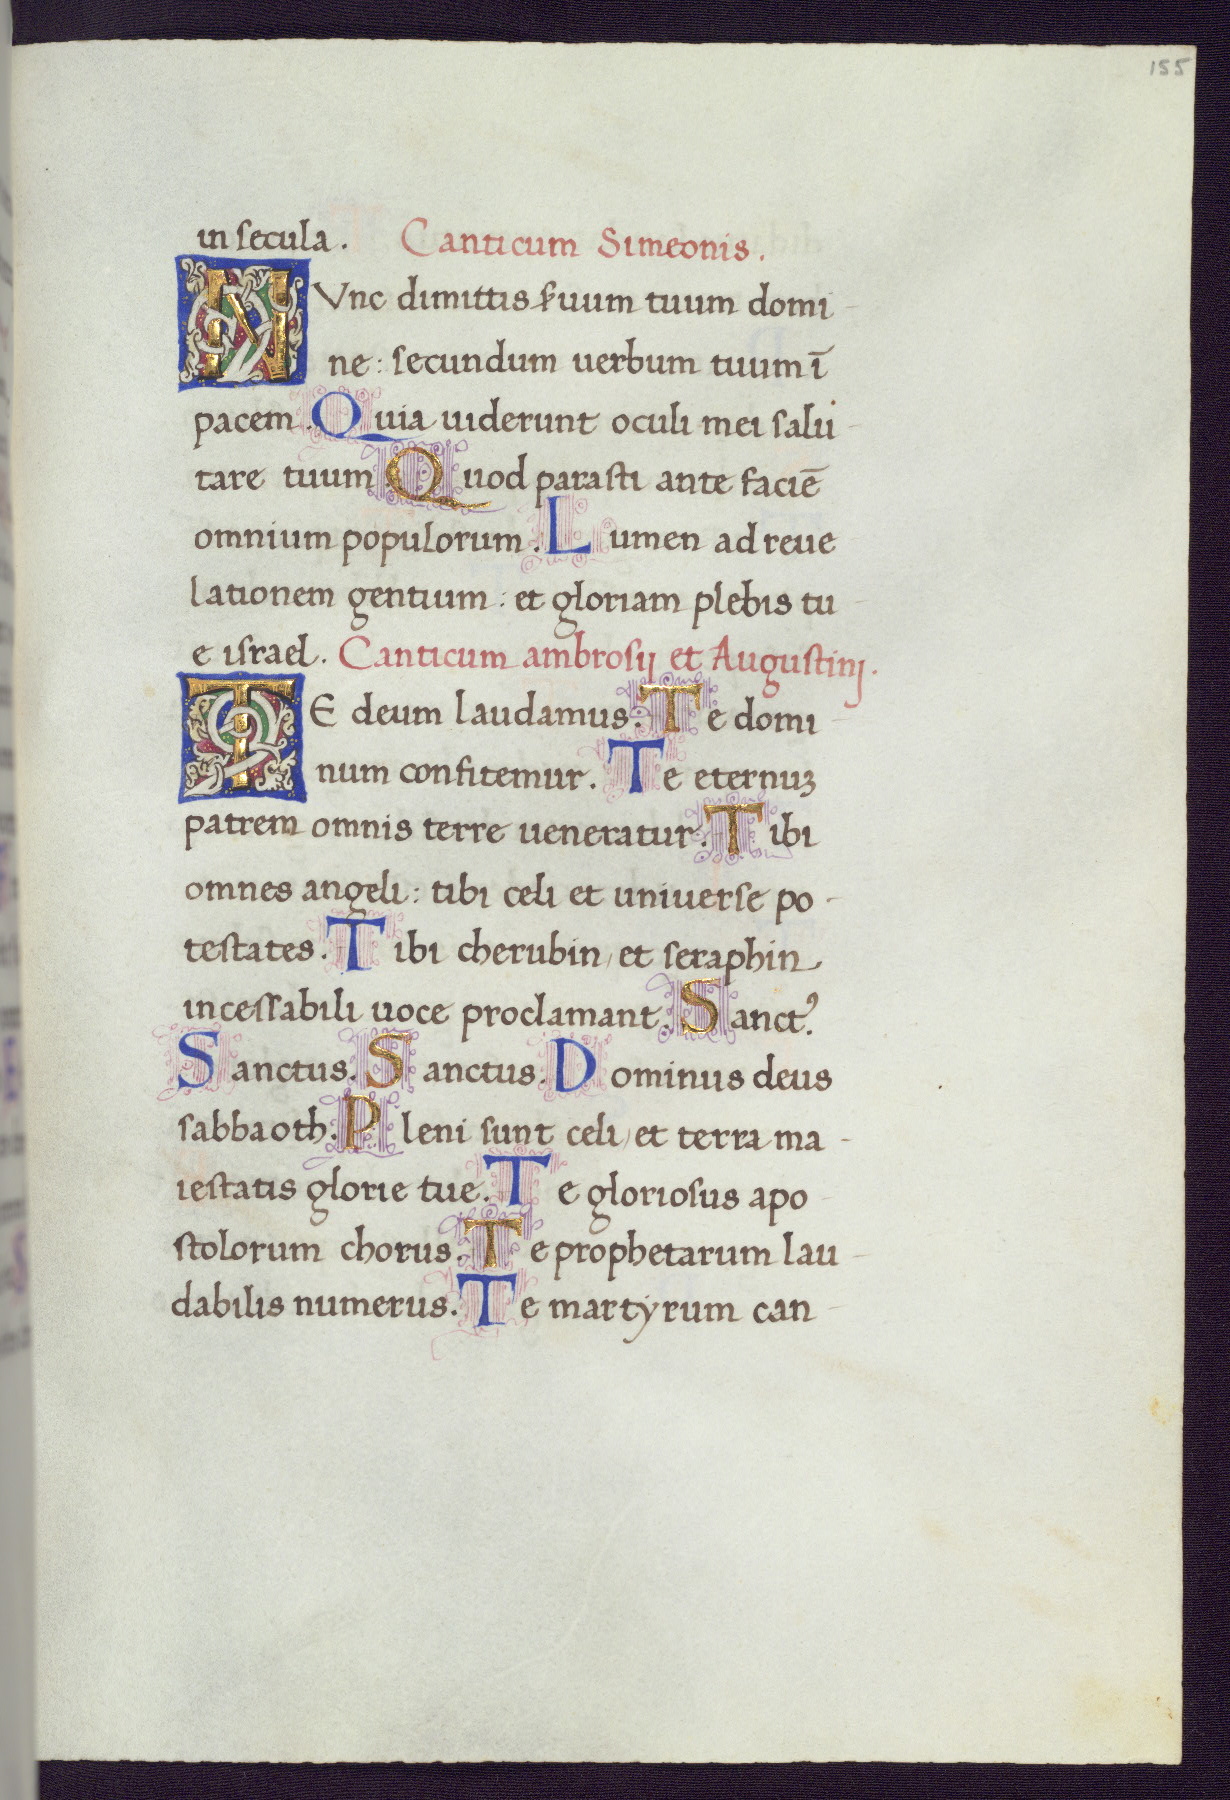 155
in secula. Canticum Simeonis.
NVnc dimittis ẜuum tuum domi-
ne: secundum uerbum tuum ī
pacem. Quia uiderunt oculi mei salu-
tare tuum Quod parasti ante faciē
omnium populorum. Lumen ad reue
lationem gentium: et gloriam plebis tu-
e israel. Canticum ambrosij et Augustinj.
TE deum laudamus. Te domi-
num confitemur. Te eternuꝫ
patrem omnis terre ueneratur. Tibi
omnes angeli: tibi celi et universe po-
testates. Tibi cherubin, et seraphin
incessabili uoce proclamant. Sanctꝰ.
Sanctus. Sanctus. Dominus deus
sabbaoth. Pleni sunt celi, et terra ma-
iestatis glorie tue. Te gloriosus apo-
stolorum chorus. Te prophetarum lau-
dabilis numerus. Te martyrum can-